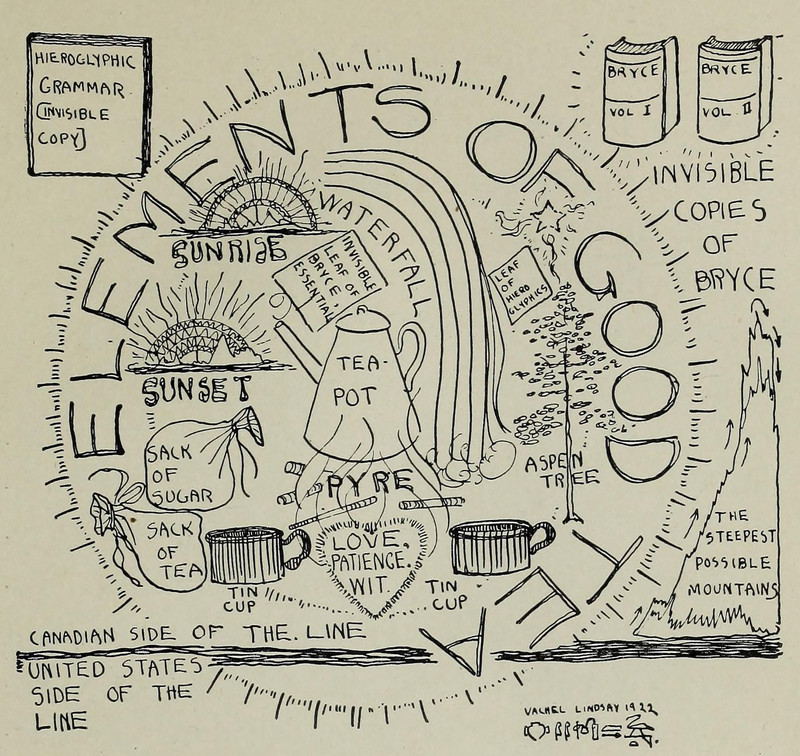 HIEROGLYPHIC
GRAMMAR
[INVISIBLE
COPY]
BRYCE
VOL I
BRYCE
VOL II
INVISIBLE
COPIES
OF
BRYCE
ELEMENTS OF GOOD TEA
SUNRISE
WATERFALL
INVISIBLE
LEAF OF
BRYCE,
ESSENTIAL
LEAF
OF
HIERO
GLYPHICS
SUNSET
TEA-
POT
SACK
OF
SUGAR
ASPEN
TREE
PYRE
SACK
OF
TEA
LOVE,
PATIENCE,
WIT.
TIN
CUP
TIN
CUP
THE
STEEPEST
POSSIBLE
MOUNTAINS
CANADIAN SIDE OF THE. LINE
UNITED STATES
SIDE OF THE
LINE
VACHEL LINDSAY 1922